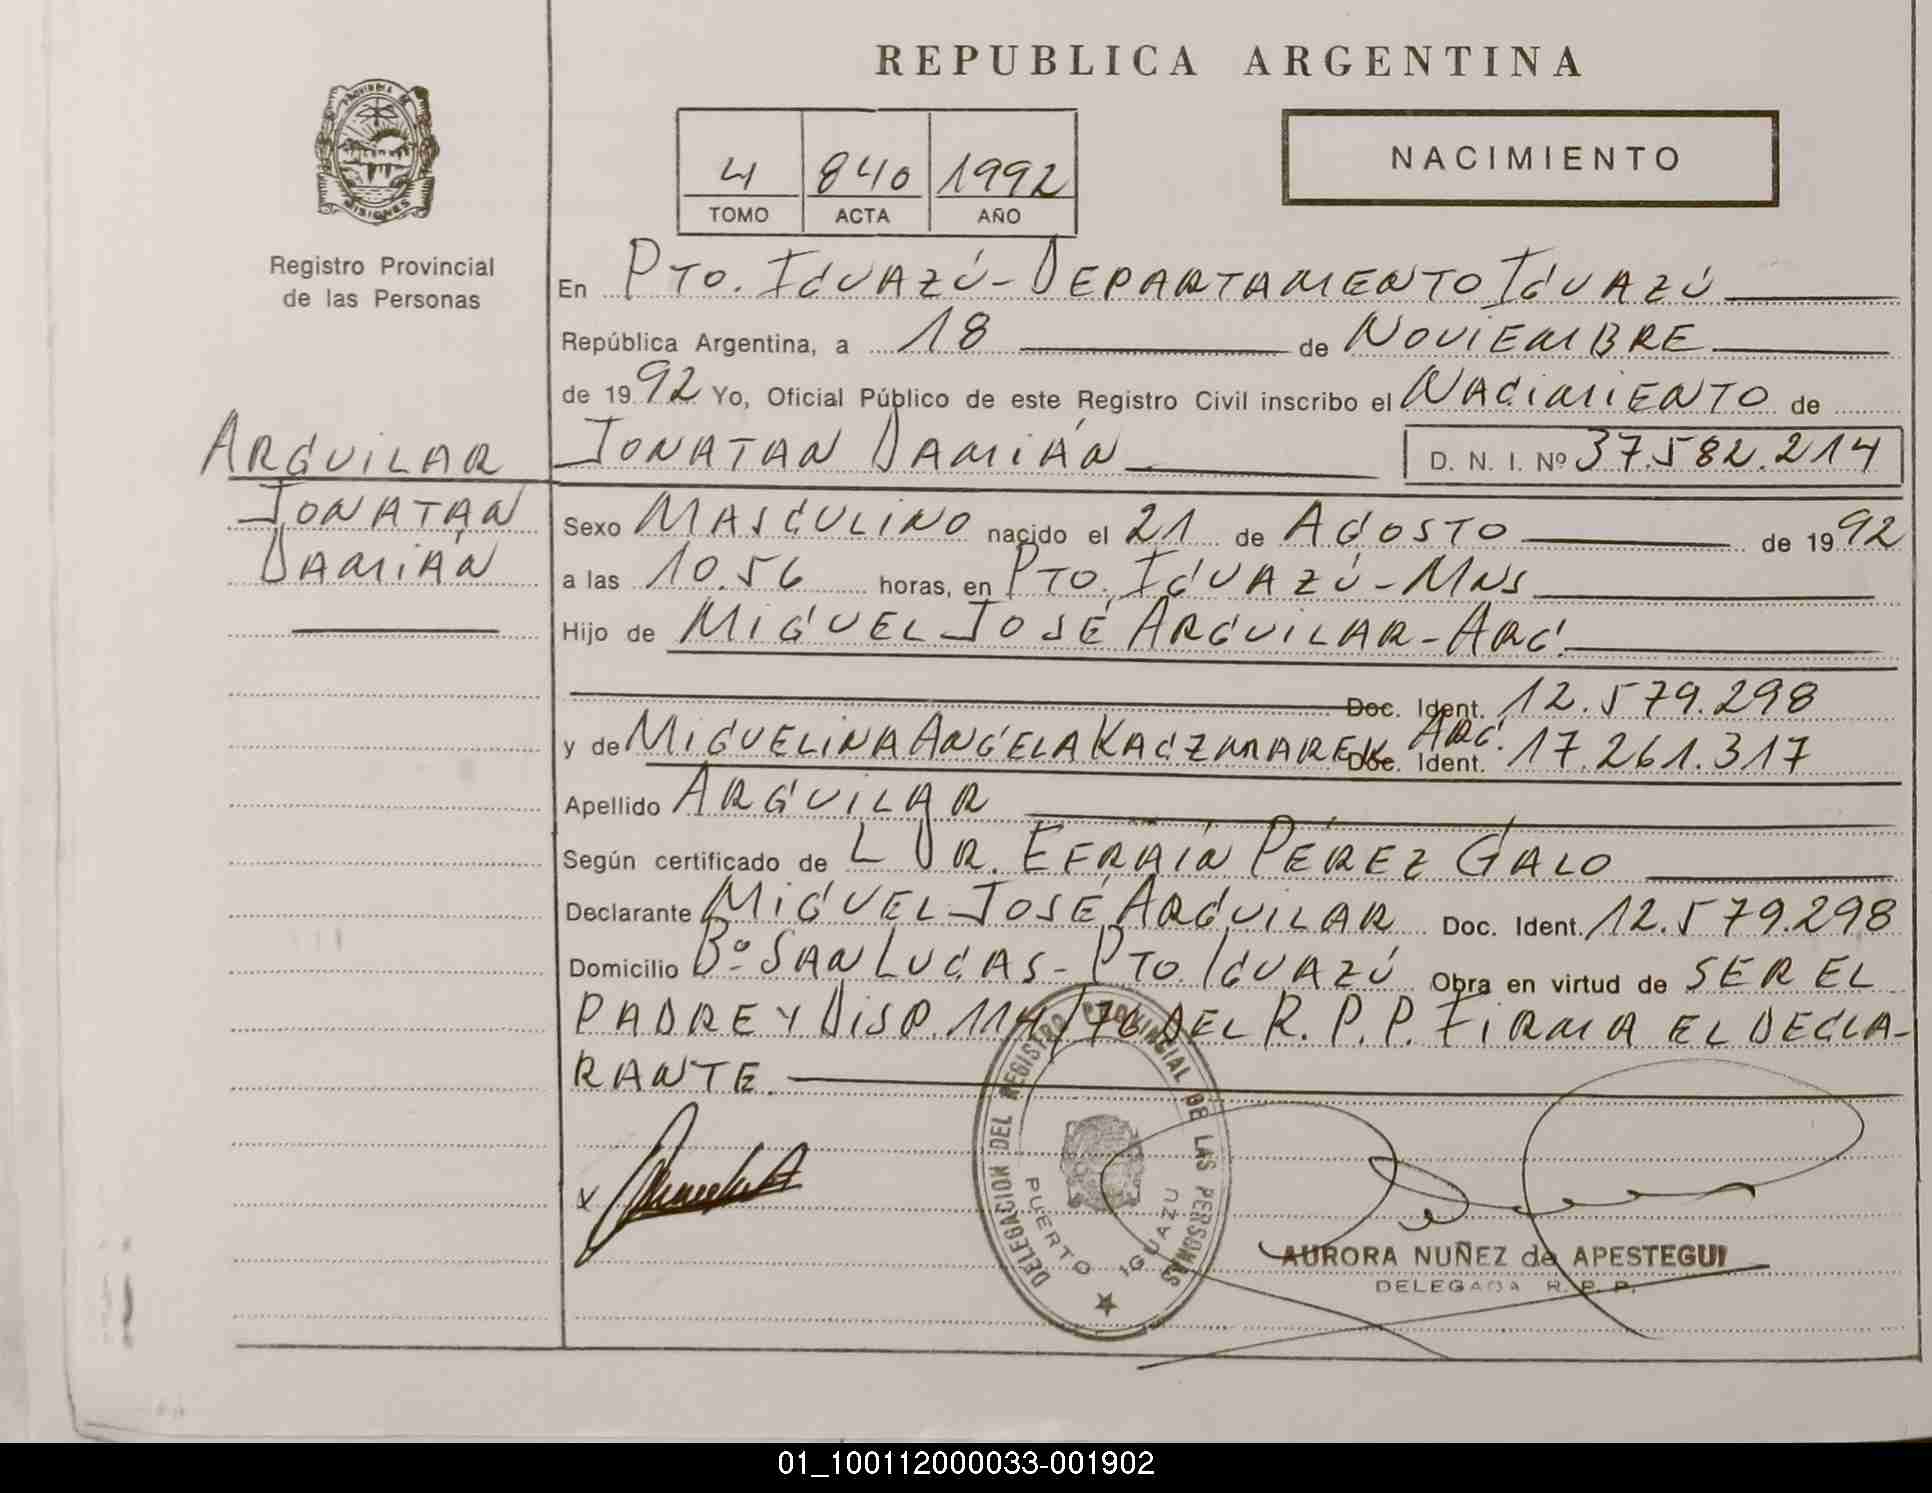 REPUBLICA ARGENTINA
PROVINCIA DE
MISIONES
Registro Provincial
de las Personas
4 840 1992
TOMO ACTA AÑO
NACIMIENTO
En PTO. IGUAZÚ - DEPARTAMENTO IGUAZÚ
República Argentina, a 18 de NOVIEMBRE
de 1992 Yo, Oficial Público de este Registro Civil inscribo el NACIMIENTO de
ARGUILAR
JONATAN DAMIÁN D. N. I. Nº 37.582.214
JONATAN
DAMIÁN
Sexo MASCULINO nacido el 21 de AGOSTO de 1992
a las 10.56 horas, en PTO. IGUAZÚ - MNS
Hijo de MIGUEL JOSÉ ARGUILAR - ARG.
Doc. Ident. 12.579.298
y de MIGUELINA ANGELA KACZMAREK ARG. Doc. Ident. 17.261.317
Apellido ARGUILAR
Según certificado de L DR. EFRAÍN PÉREZ GALO
Declarante MIGUEL JOSÉ ARGUILAR Doc. Ident. 12.579.298
Domicilio Bº SAN LUCAS - PTO. IGUAZÚ Obra en virtud de SER EL
PADRE Y DISP. 114/76 DEL R. P. P. FIRMA EL DECLA-
RANTE.
DELEGACION DEL REGISTRO PROVINCIAL DE LAS PERSONAS
PUERTO IGUAZU
AURORA NUÑEZ de APESTEGUI
DELEGADA R. P. P.
01_100112000033-001902